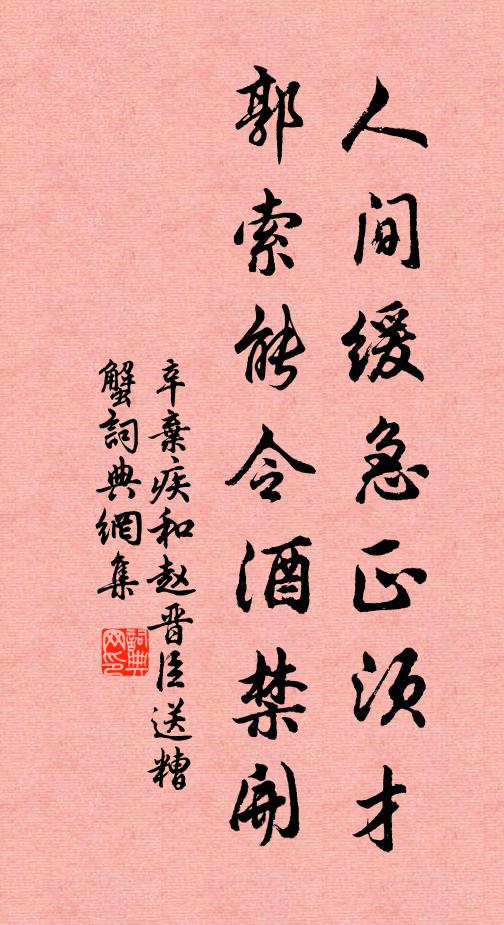 人间缓急正须才
郭索能令酒禁开
辛棄疾和赵晋臣送糟
蟹詞典網集
詞典
网印